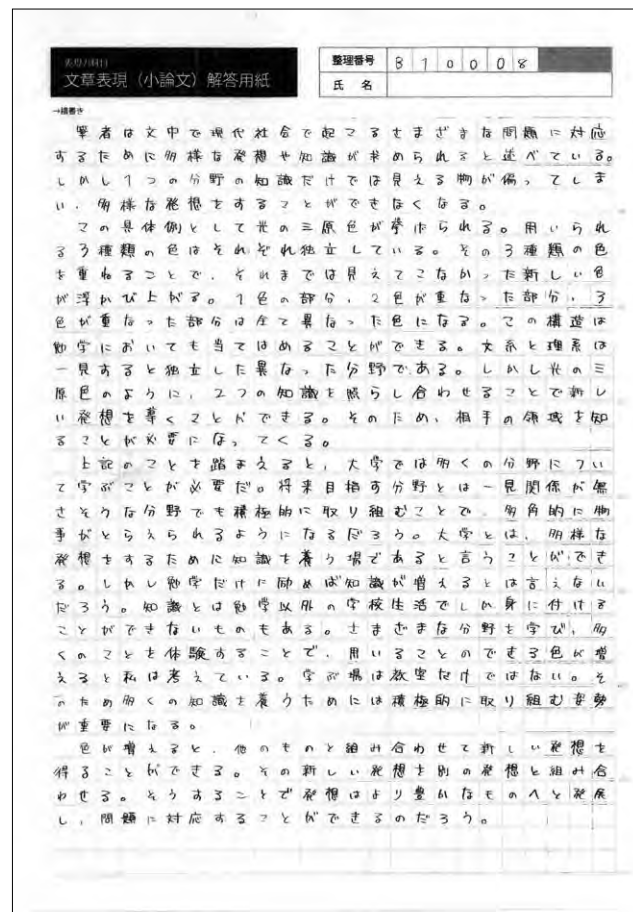 表現力科目
文章表現（小論文）解答用紙
整理番号 B10008
氏名
→横書き
筆者は文中で現代社会で起こるさまざまな問題に対応
するために多様な発想や知識が求められると述べている。
しかし1つの分野の知識だけでは見える物が偏ってしま
い、多様な発想をすることができなくなる。
この具体例として光の三原色が挙げられる。用いられ
る3種類の色はそれぞれ独立している。その3種類の色
を重ねることで、それまでは見えてこなかった新しい色
が浮かび上がる。1色の部分、2色が重なった部分、3
色が重なった部分は全て異なった色になる。この構造は
勉学においても当てはめることができる。文系と理系は
一見すると独立した異なった分野である。しかし光の三
原色のように、2つの知識を照らし合わせることで新し
い発想を導くことができる。そのため、相手の領域を知
ることが必要になってくる。
上記のことを踏まえると、大学では多くの分野につい
て学ぶことが必要だ。将来目指す分野とは一見関係が無
さそうな分野でも積極的に取り組むことで、多角的に物
事がとらえられるようになるだろう。大学とは、多様な
発想をするために知識を養う場であると言うことができ
る。しかし勉学だけに励めば知識が増えるとは言えない
だろう。知識とは勉学以外の学校生活でしか身に付ける
ことができないものもある。さまざまな分野を学び、多
くのことを体験することで、用いることのできる色が増
えると私は考えている。学ぶ場は教室だけではない。そ
のため多くの知識を養うためには積極的に取り組む姿勢
が重要になる。
色が増えると、他のものと組み合わせて新しい発想を
得ることができる。その新しい発想を別の発想と組み合
わせる。そうすることで発想はより豊かなものへと発展
し、問題に対応することができるのだろう。